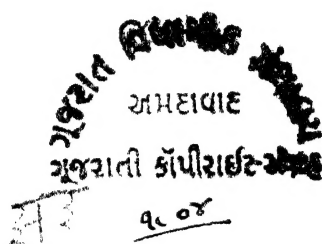 ગૂજરાત વિદ્યાપીઠ ગ્રંથાલય
અમદાવાદ
ગૂજરાતી કૉપીરાઈટ-સંગ્રહ
૧૯૦૪